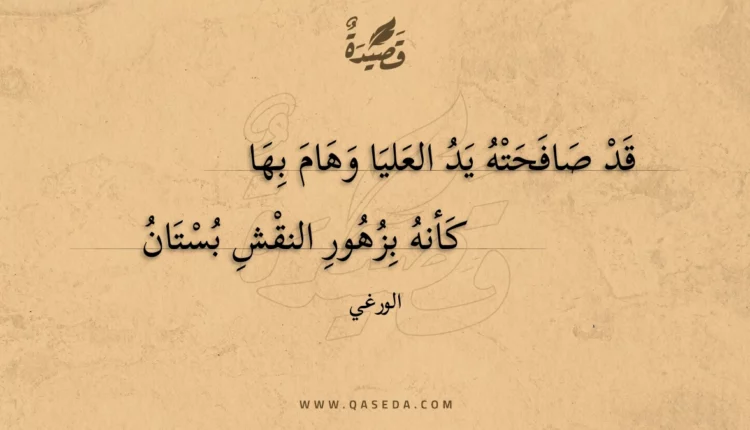 قَصِيْدَةٌ
قَدْ صَافَحَتْهُ يَدُ العَليَا وَهَامَ بِهَا
كَأنهُ بِزُهُورِ النقْشِ بُسْتَانُ
الورغي
WWW.QASEDA.COM